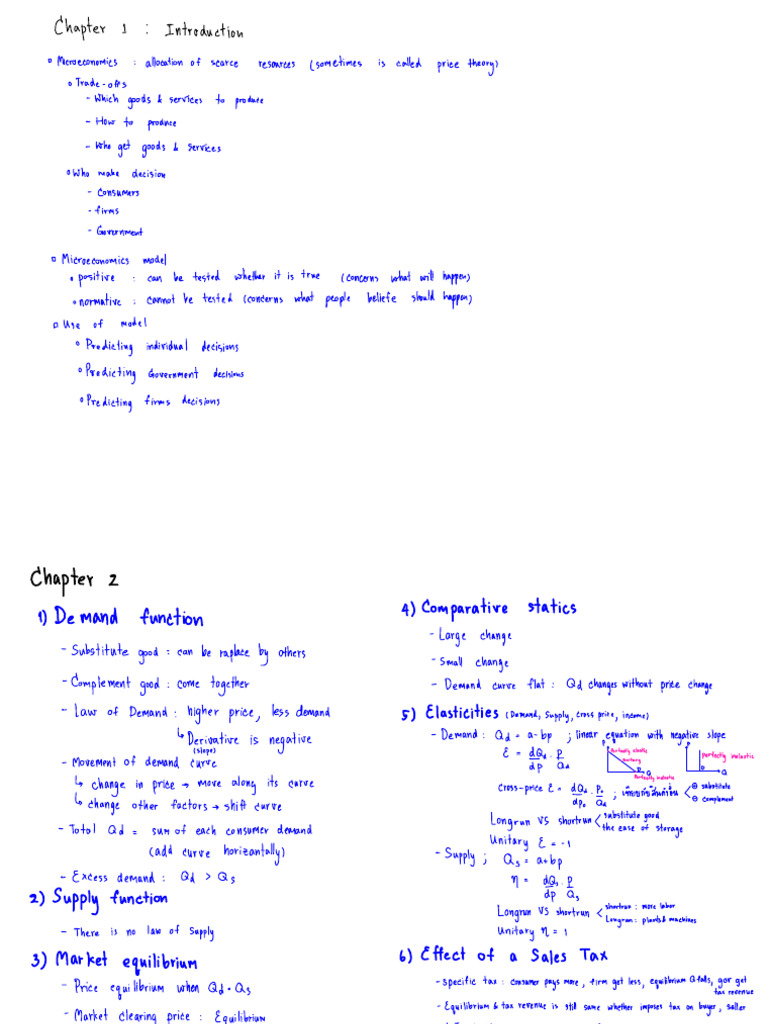 Chapter 1 : Introduction
Microeconomics : allocation of scarce resources (sometimes is called price theory)
Trade-offs
- Which goods & services to produce
- How to produce
- Who get goods & services
Who make decision
- Consumers
- firms
- Government
Microeconomics model
positive : can be tested whether it is true (concerns what will happen)
normative : cannot be tested (concerns what people beliefe should happen)
Use of model
Predicting individual decisions
Predicting Government decisions
Predicting firms decisions
Chapter 2
1) Demand function
- Substitute good : can be raplace by others
- Complement good : come together
- Law of Demand : higher price, less demand
↳ Derivative is negative
(slope)
- Movement of demand curve
↳ change in price → move along its curve
↳ change other factors → shift curve
- Total Qd = sum of each consumer demand
(add curve horizontally)
- Excess demand : Qd > Qs
2) Supply function
- There is no law of supply
3) Market equilibrium
- Price equilibrium when Qd = Qs
- Market clearing price : Equilibrium
4) Comparative statics
- Large change
- Small change
- Demand curve flat : Qd changes without price change
5) Elasticities (Demand, Supply, cross price, income)
- Demand : Qd = a-bp ; linear equation with negative slope
ε = dQd/dp · p/Qd
P
Perfectly elastic
unitary
Perfectly inelastic
Q
P
perfectly inelastic
Q
cross-price ε = dQd/dpo · Po/Qd ;
⊕ substitute
⊖ complement
Longrun VS shortrun < substitute good
the ease of storage
Unitary ε = -1
- Supply ; Qs = a+bp
η = dQs/dp · p/Qs
Longrun VS shortrun < shortrun : more labor
Longrun : plants & machines
Unitary η = 1
6) Effect of a Sales Tax
- specific tax : consumer pays more, firm get less, equilibrium Q falls, gov get
tax revenue
- Equilibrium & tax revenue is still same whether imposes tax on buyer, saller